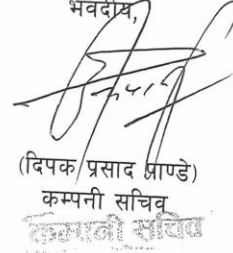 भवदीय,
(दिपक प्रसाद पाण्डे)
कम्पनी सचिव
कम्पनी सचिव